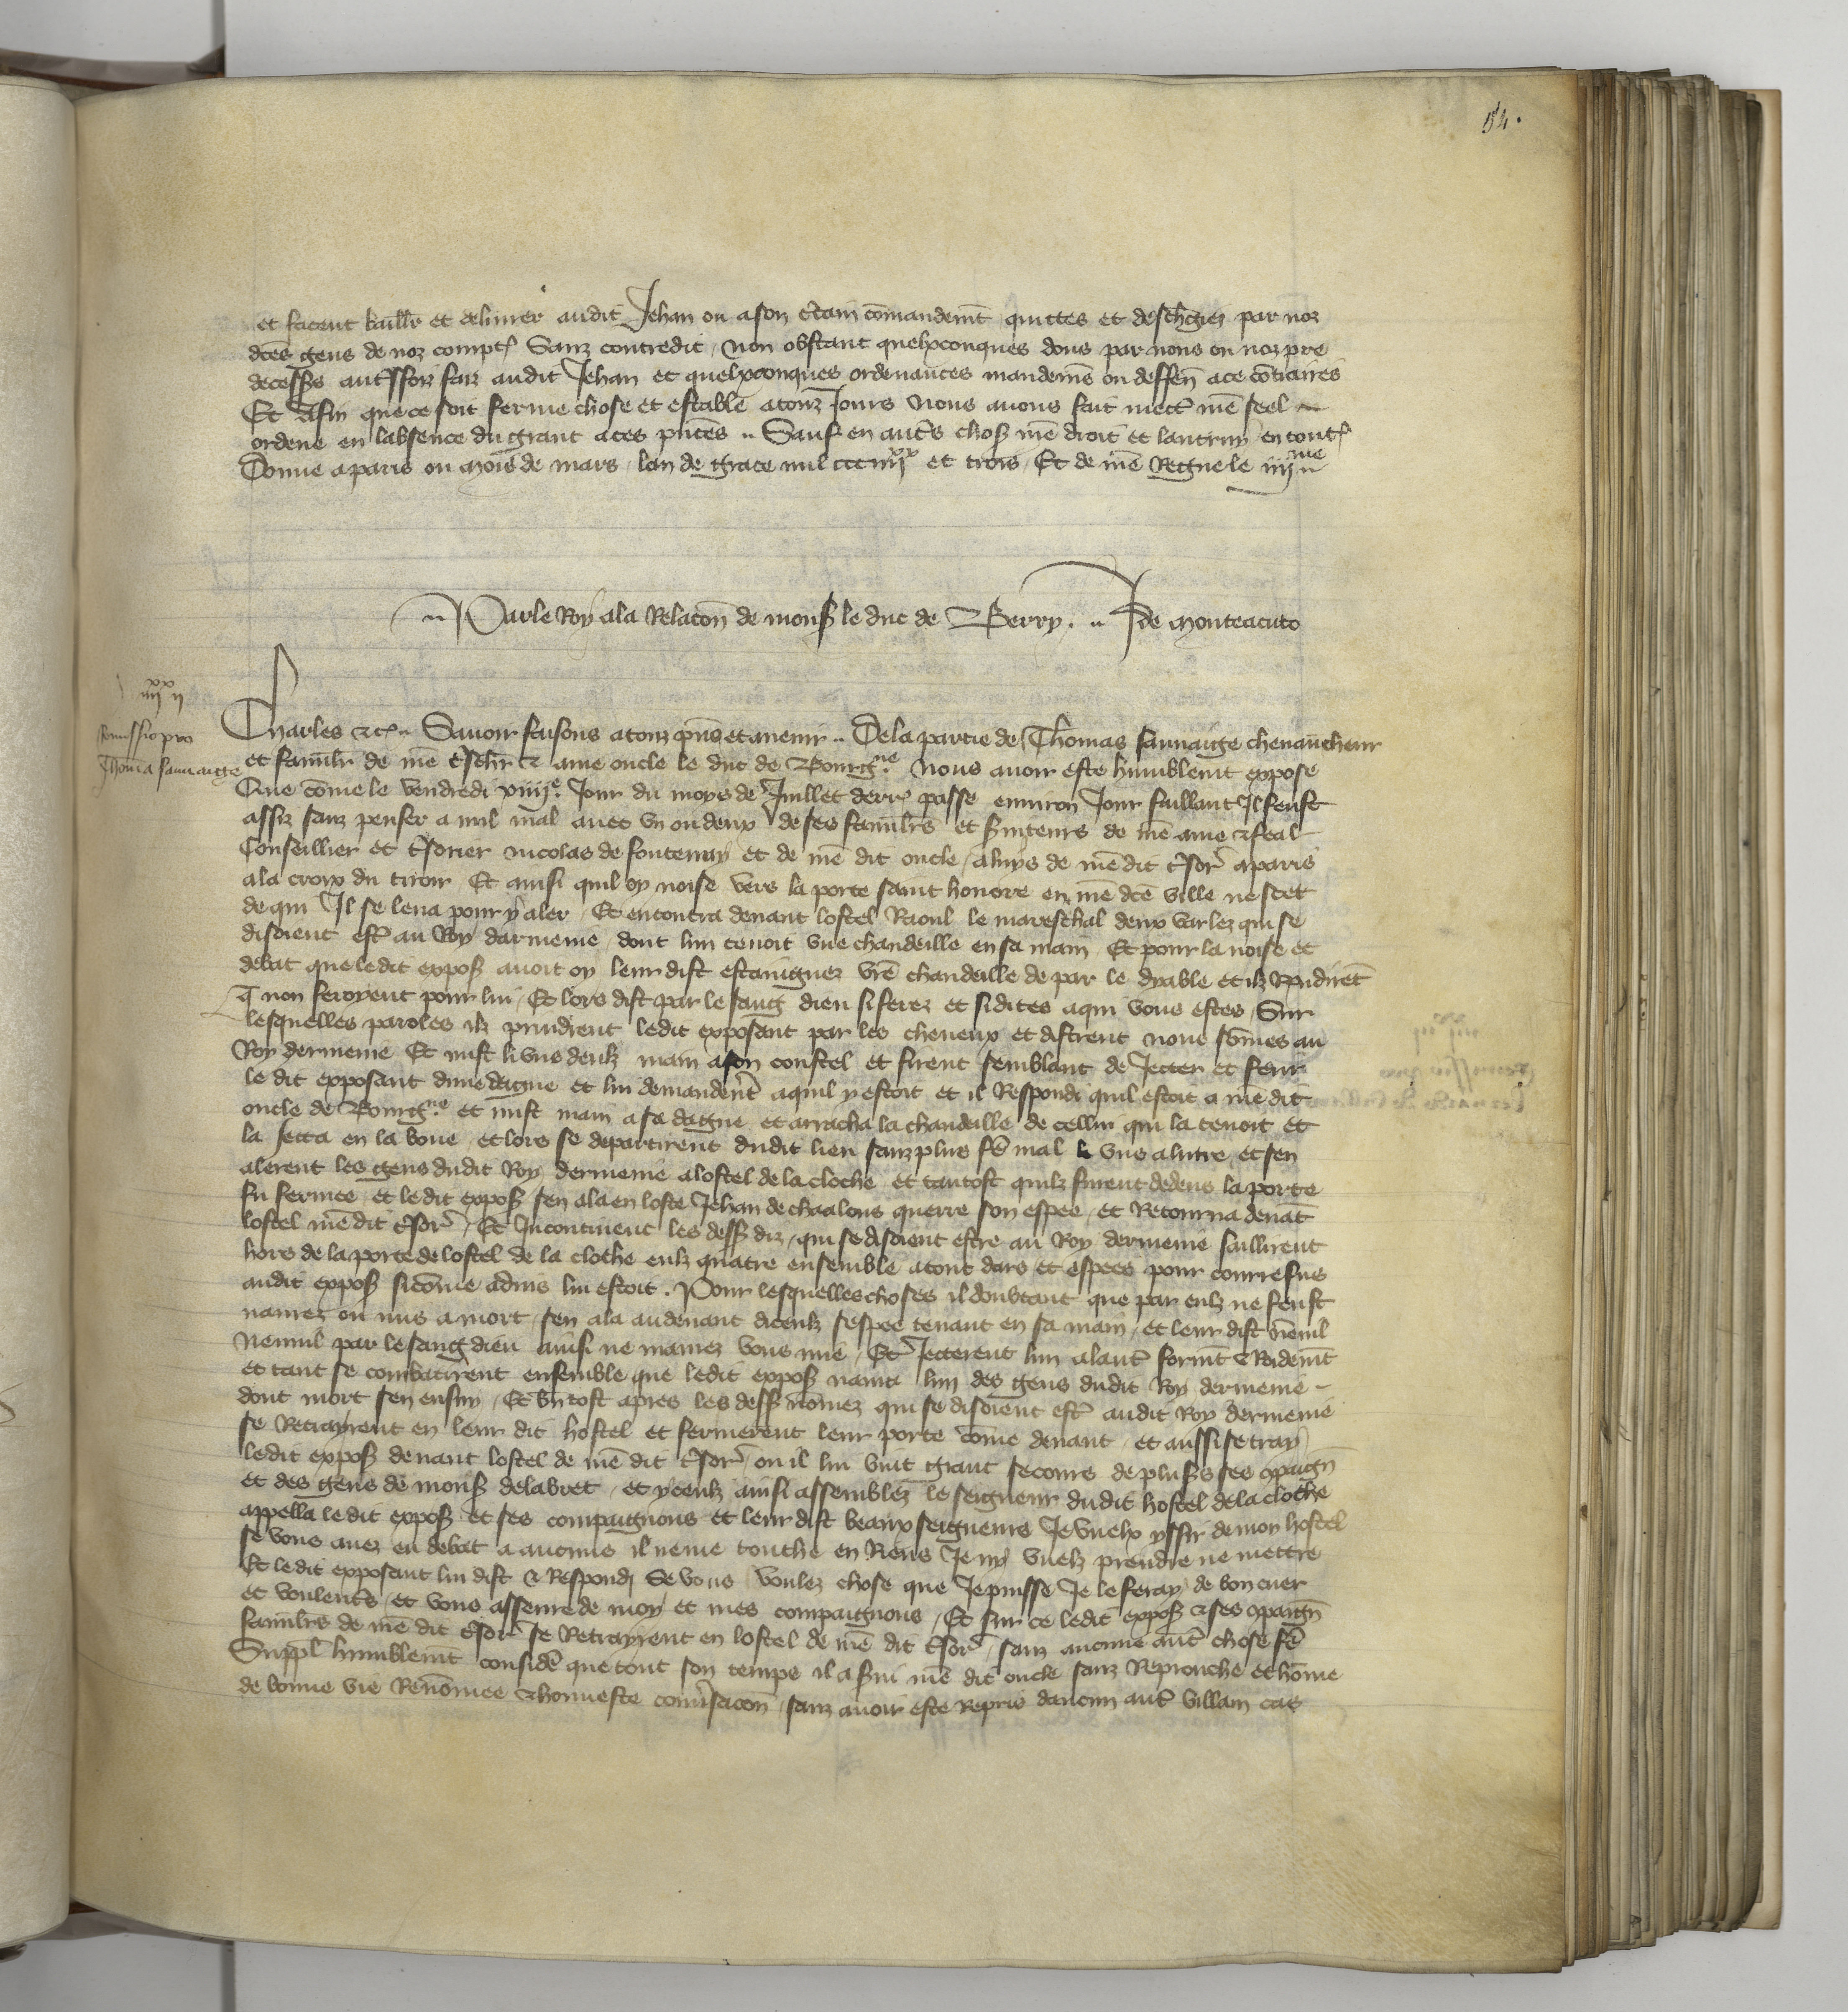 54.
et facent baillr et delivrer audit Jehan ou a son c̃tain cõmandem̃t quittes et deschgiez par noz
dc̃es gens de noz compt sanz contredit, non obstant quelxconques dons par nous ou noz pre
decess̃s autffoiz faiz audit Jehan et quelxconques ordenances mandemẽs ou deffeñ a ce cõtraires
Et Afin que ce soit ferme chose et estable a touz Jours Nous avons fait mectr̃ nr̃e seel
ordene en labsence du grant a ces pñtes .. Sauf en aut̃s chos̃ nr̃e droit et lautruy en tout
Donne a paris ou mois de mars, lan de grace mil ccc iiij xx et trois, Et de nr̃e Regne le iiij me
.. Par le Roy a la Relacoñ de mons̃ le duc de Berry. .. J de monteacuto
iiij xx ij
Remissio pro
Thoma sauvaige
Charles etc .. Savoir faisons a touz pñs et avenir .. De la partie de Thomas sauvaige chevaucheur
et familr̃ de nr̃e t̃schr̃ & ame oncle le duc de Bourg ne Nous avoir este humblemt expose
Que cõme le vendredi xviij e. Jour du moys de Juillet derr̃ passe environ Jour faillant Il feust
assiz sanz penser a nul mal avec un ou deux de ses familr̃s et s̃viteurs de nr̃e ame & feal
Conseillier et t̃sorier Nicolas de fontenay et de nr̃e dit oncle, a luys de nr̃e dit t̃sor̃ a paris
a la croix du tiroir, Et ainsi quil oy noise vers la porte saint honore en nr̃e dc̃e ville ne scet
de qui Il se leva pour y aler, Et encontra devant lostel Raoul le mareschal deux varlez qui se
disoient estr̃ au Roy darmenie, dont lun tenoit une chandeille en sa main, Et pour la noise et
debat que le dit expos̃ avoit oy leur dist estaigniez vr̃e chandeille de par le dyable et ilz Rñdirẽt
q̃ non feroyent pour lui, Et lors dist par le sang dieu si ferez et si dites a qui vous estes, Sur
lesquelles paroles ilz prindrent ledit exposant par les cheveux et distrent nous sõmes au
Roy dermenie Et mist li uns deulz main a son coustel et firent semblant de Jecter et ferir
le dit exposant dune dague et lui demandr̃ẽt a qui il y estoit et il Respondi quil estoit a nr̃e dit
oncle de Bourg ne et mist main a sa dague et arracha la chandeille de cellui qui la tenoit et
la Jecta en la boue, et lors se departirent dudit lieu sanz plus fẽ mal l uns a lautre, et sen
alerent les gens dudit Roy dermenie a lostel de la cloche et tantost quilz furent dedens la porte
fu fermee, et le dit expos̃ sen ala en loste Jehan de chaalons querre son espee, et Retourna devãt
lostel nr̃e dit t̃sor̃, Et Incontinent les dess̃ diz, qui se disoient estre au Roy dermenie saillirent
hors de la porte de lostel de la cloche eulz quatre ensemble a tout dars et espees pour courre sus
audit expos̃ si cõme advis lui estoit. Pour lesquelles choses il doubtant que par eulz ne feust
navrez ou mis a mort, sen ala audevant diceulz sespee tenant en sa main, et leur dist nẽnil
Nennil par le sang dieu ainsi ne mavrez vous mie, Et Jecterent lun a lautr̃ formẽt & Roidemẽt
et tant se combatirent ensemble que ledit expos̃ navra lun des gens dudit Roy dermenie
dont mort sen ensuy, Et bñ tost apres les dess̃ nõmez qui se disoient estr̃ audit Roy dermenie
se Retrayrent en leur dit hostel et fermerent leur porte cõme devant, et aussi se tray
ledit expos̃ devant lostel de nr̃e dit t̃sor̃, ou il lui vint grant secours de plus̃s ses cõpaigñ
et des gens de mons̃ delabret, et yceulz ainsi assemblez le seigneur dudit hostel de la cloche
appella le dit expos̃ et ses compaignons et leur dist beaux seigneurs Je vuelx yssir de mon hostel
se vous avez eu debat a aucuns il ne me touche en Riens Je ny vuelz prendre ne mettre
Et le dit exposant lui dist & Respondi Se vous voulez chose que Je puisse Je le feray de bon cuer
et voulentr̃s, et vous asseure de moy et mes compaignons, Et sur ce ledit expos̃ & ses cõpaigñ
familr̃s de nr̃e dit t̃sor̃ se Retrayrent en lostel de nr̃e dit t̃sor̃, sanz aucune autr̃ chose fẽ
Suppl̃ humblemẽt considẽ que tout son temps il a s̃vi nr̃e dit oncle sanz Reprouche et hõme
de bonne vie Renõmee & honneste conṽsacoñ, sanz avoir este Repris daucun autr̃ villain cas